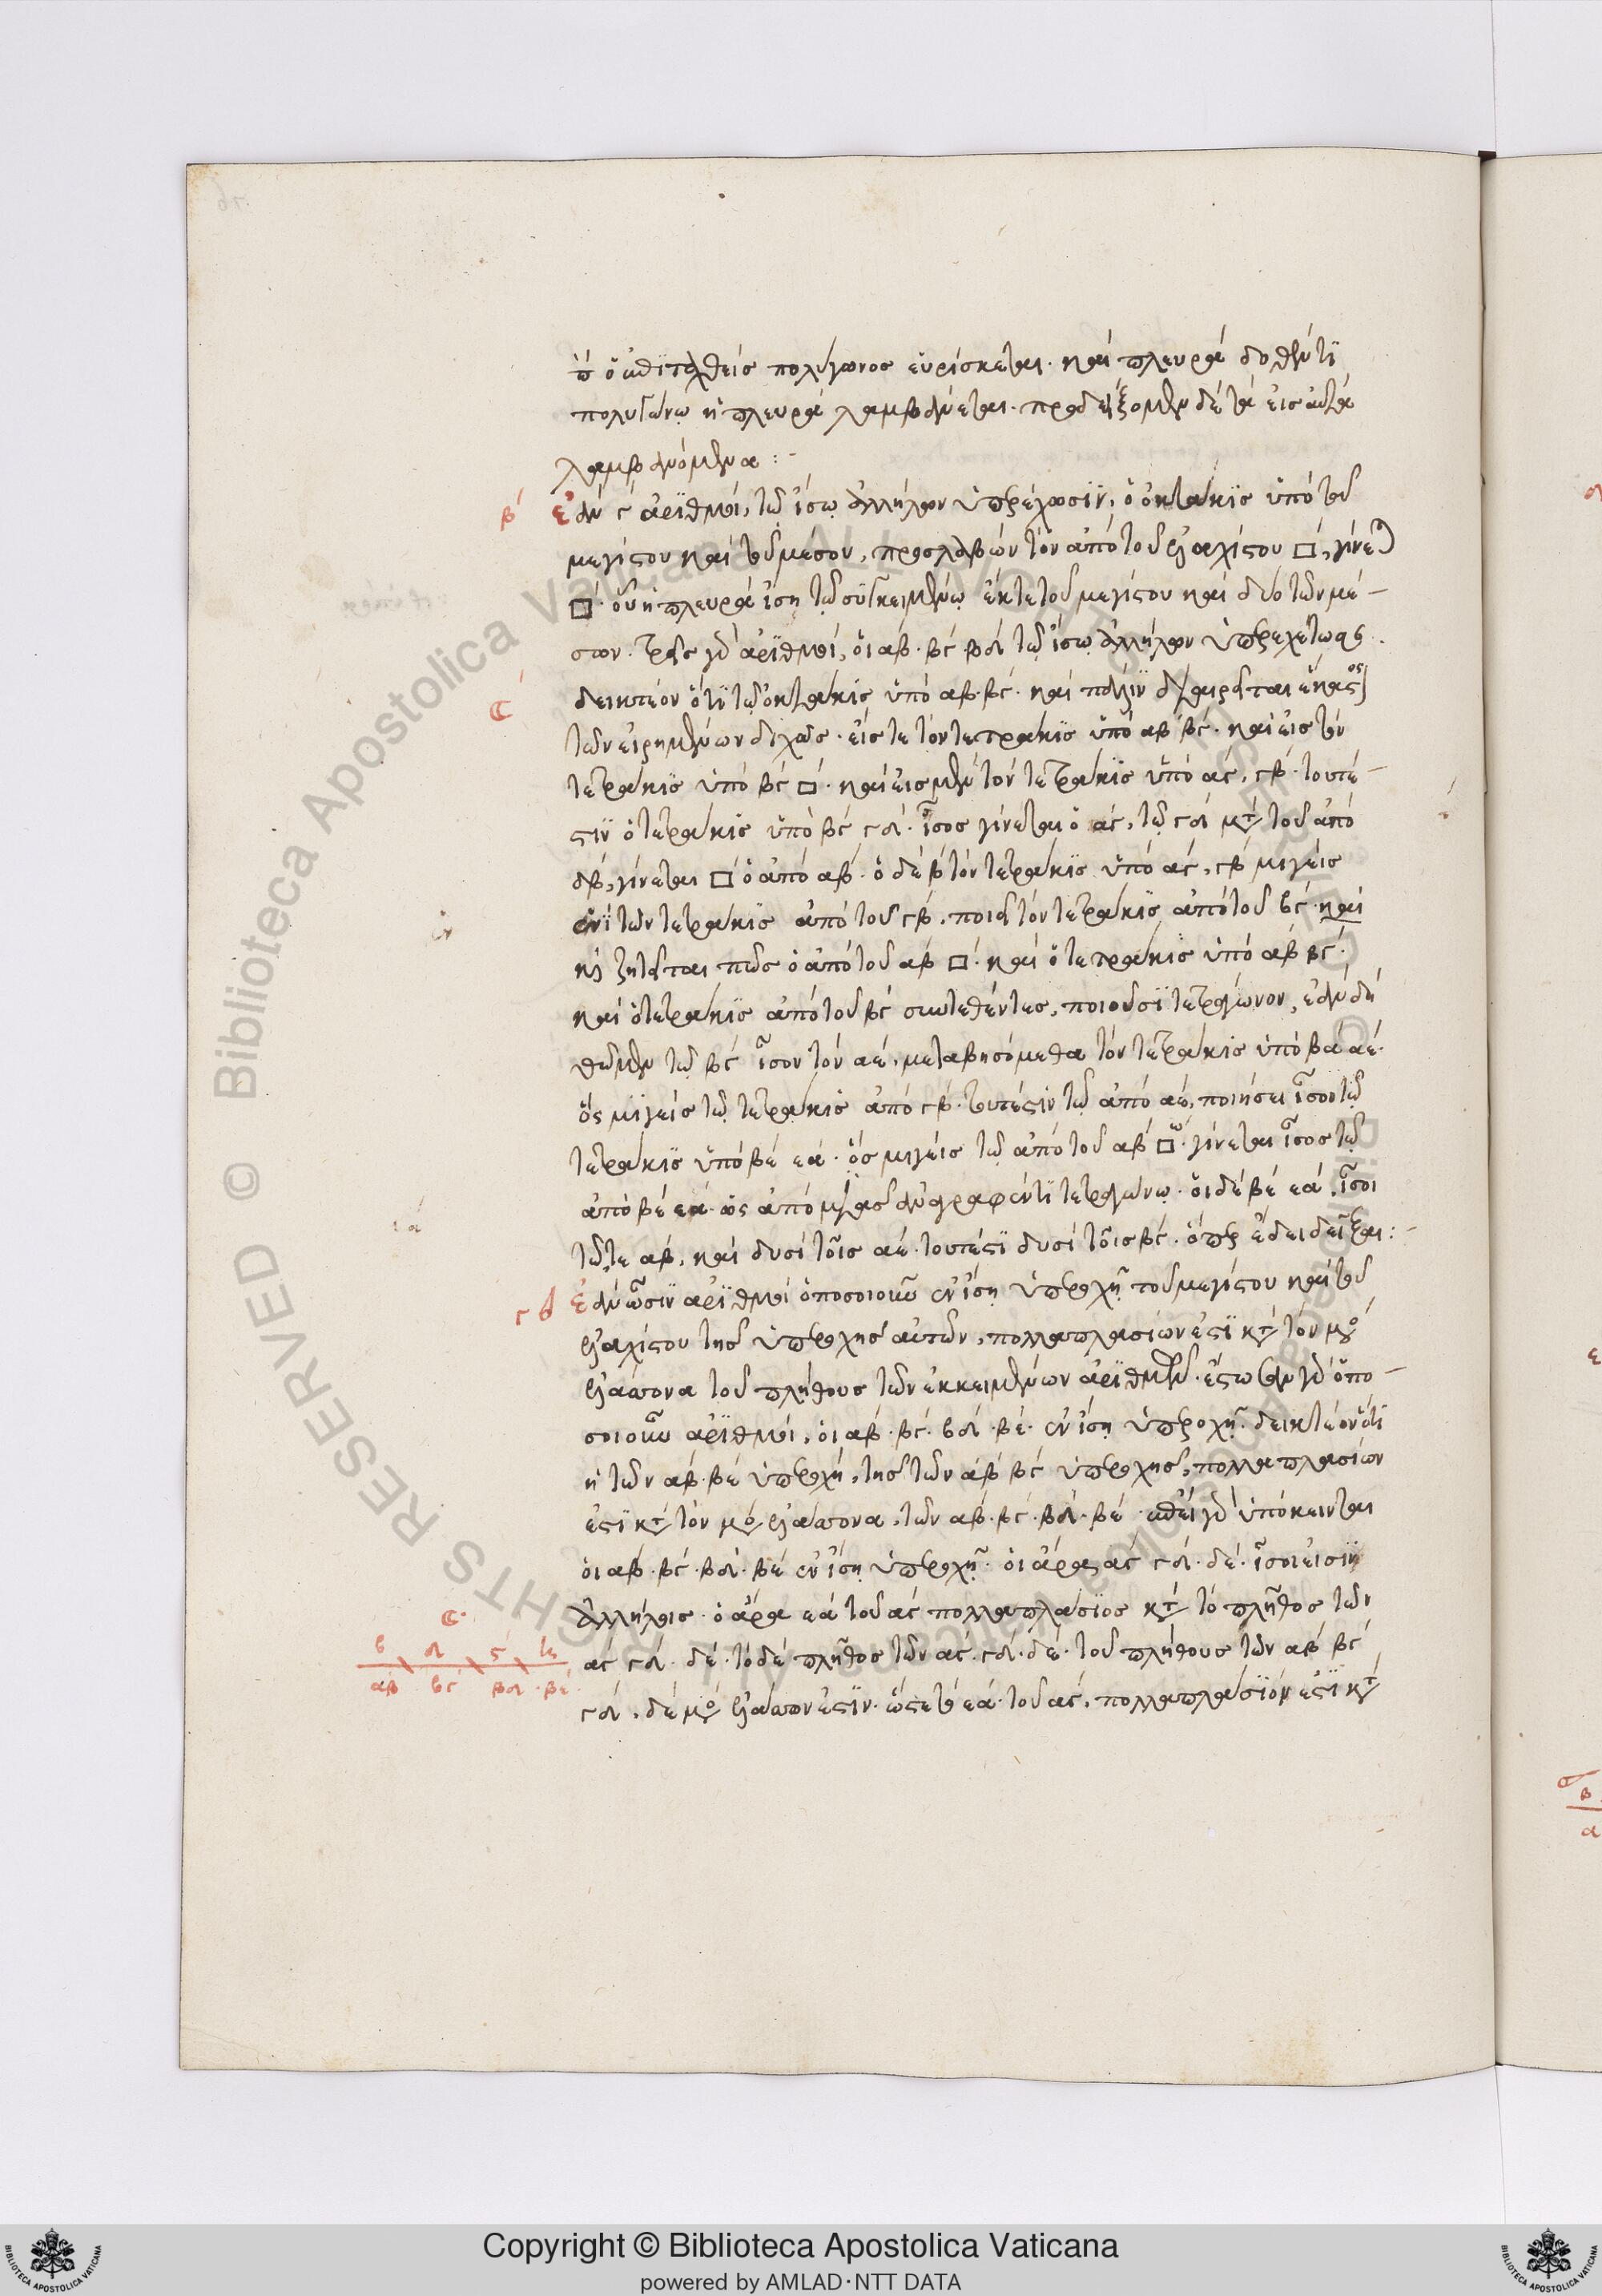 πολύγωνος εὑρίσκεται· καὶ πλευρὰ δοθέντι
πολυγώνω ἡ πλευρὰ λαμβάνεται· προδείξομεν δὲ τὰ εἰς αὐτὰ
λαμβανόμενα :-
β ἐὰν γ ἀριθμοὶ, τῶ ἴσω ἀλλήλων ὑπερέχωσιν, ὁ ὀκτάκις ὑπὸ τοῦ
μεγίστου καὶ τοῦ μέσου, προσλαβὼν τὸν ἀπὸ τοῦ ἐλαχίστου □, γίνε
□· οὗ ἡ πλευρὰ ἴση τῶ συγκειμένω ἔκ τε τοῦ μεγίστου καὶ δύο τῶν μέ-
σων. τρεῖς γὰρ ἀριθμοὶ, οἱ αβ· βγ βδ τῶ ἴσω ἀλλήλων ὑπερεχέτωσ
δεικτέον ὅτι τῶ ὀκτάκις ὑπὸ αβ· βγ· καὶ πάλιν διαιρεῖται
τῶν εἰρημένων διχῶς· εἴς τε τὸν τετράκις ὑπὸ αβ βγ· καὶ εἰς τὸν
τετράκις ὑπὸ βγ □· καὶ εἰς μὲν τὸν τετράκις ὑπὸ αγ, γβ· τουτέ-
στιν ὁ τετράκις ὑπὸ βγ γδ· ἴσος γίνεται ὁ αγ, τῶ γδ μτ τοῦ ἀπὸ
δβ, γίνεται □ ὁ ἀπὸ αβ· ὁ δὲ β τὸν τετράκις ὑπὸ αγ, γβ μιγεὶς
ἑνὶ τῶν τετράκις ἀπὸ τοῦ γβ, ποιεῖ τὸν τετράκις ἀπὸ τοῦ βγ· καὶ
ζητεῖται πῶς ὁ ἀπὸ τοῦ αβ □· καὶ ὁ τετράκις ὑπὸ αβ βγ·
καὶ ὁ τετράκις ἀπὸ τοῦ βγ συντεθέντες, ποιοῦσι τετράγωνον, ἐὰν δὴ
θῶμεν τῶ βγ ἴσον τὸν αε, μεταβησόμεθα τὸν τετράκις ὑπὸ βα αε·
ὃς μιγεὶς τῶ τετράκις ἀπὸ γβ· τουτέστιν τῶ ἀπὸ αε, ποιήσει ἴσον τῶ
τετράκις ὑπὸ βε εα· ὃς μιγεὶς τῶ ἀπὸ τοῦ αβ □ω· γίνεται ἴσος τῶ
ἀπὸ βε εα· ὡς ἀπὸ μιᾶς ἀναγραφέντι τετραγώνω· οἱ δὲ βε εα, ἴσοι
τῶ τε αβ, καὶ δυσὶ τοῖς αε· τουτέστι δυσὶ τοῖς βγ· ὅπερ ἔδει δεῖξαι :-
γ ἐὰν ὦσιν ἀριθμοὶ ὁποσοιοῦν ἐν ἴση ὑπεροχῆ τοῦ μεγίστου καὶ τοῦ
ἐλαχίστου τῆς ὑπεροχῆς αὐτῶν, πολλαπλασίων ἐστὶ κτ τὸν μο
ἐλάττονα τοῦ πλήθους τῶν ἐκκειμένων ἀριθμῶν· ἔστωσαν γὰρ ὁπο-
σοιοῦν ἀριθμοὶ, οἱ αβ· βγ· βδ· βε· ἐν ἴση ὑπεροχῆ· δεικτέον ὅτι
ἡ τῶν αβ· βε ὑπεροχὴ, τῆς τῶν αβ βγ ὑπεροχῆς, πολλαπλασίων
ἐστὶ κτ τὸν μο ἐλάττονα, τῶν αβ· βγ· βδ· βε· ἐπεὶ γὰρ ὑπόκεινται
οἱ αβ· βγ· βδ· βε ἐν ἴση ὑπεροχῆ· οἱ ἄρα αγ γδ· δε· ἴσοι εἰσὶν
ἀλλήλοις· ὁ ἄρα εα τοῦ αγ πολλαπλάσιος κτ τὸ πλῆθος τῶν
αγ γδ· δε· τὸ δὲ πλῆθος τῶν αγ· γδ· δε· τοῦ πλήθους τῶν αβ βγ
γδ, δε μο ἐλάττων ἐστὶν· ὥστε ὁ εα· τοῦ αγ, πολλαπλασίων ἐστὶ κτ
β δ ϛ η
αβ βγ βδ βε
Copyright © Biblioteca Apostolica Vaticana
powered by AMLAD·NTT DATA
BIBLIOTECA APOSTOLICA VATICANA
BIBLIOTECA APOSTOLICA VATICANA